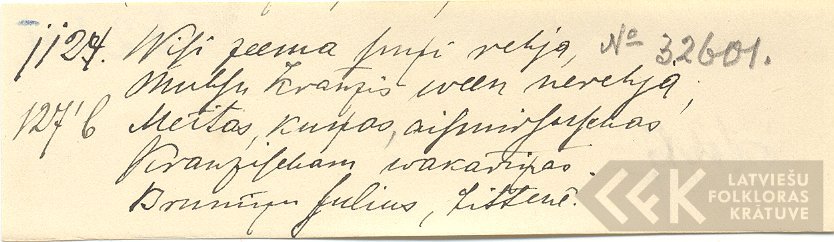 1127. Wisi zeema suņi rehja, No 32601.
Muhsu Kranzis ween nerehja,
127'6 Meitas, kuņas, aismirsuschas
Kranzischam wakariņas.
Bruniņu Julius, Listenē.
LATVIEŠU
FOLKLORAS
KRĀTUVE